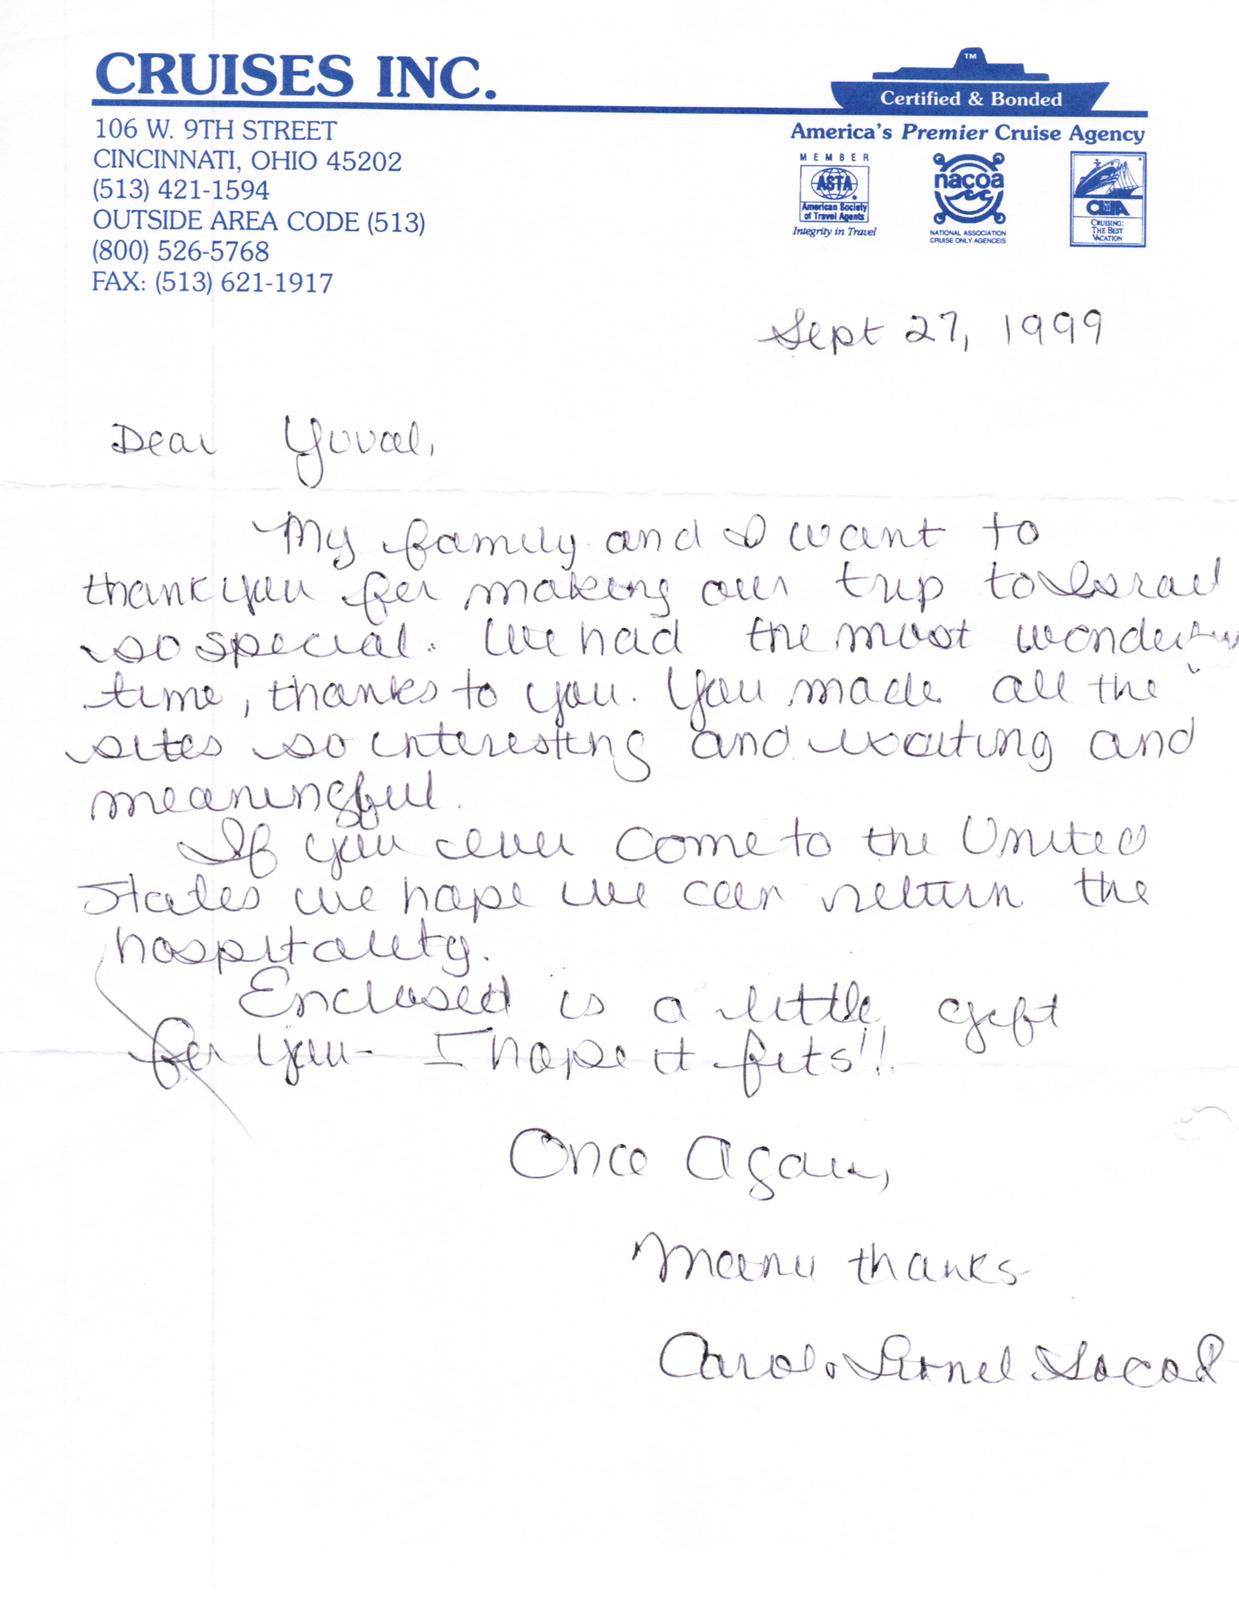 CRUISES INC.
106 W. 9TH STREET
CINCINNATI, OHIO 45202
(513) 421-1594
OUTSIDE AREA CODE (513)
(800) 526-5768
FAX: (513) 621-1917
TM
Certified & Bonded
America's Premier Cruise Agency
MEMBER
ASTA
American Society
of Travel Agents
Integrity in Travel
nacoa
NATIONAL ASSOCIATION
CRUISE ONLY AGENCIES
CLIA
CRUISING:
THE BEST
VACATION
Sept 27, 1999
Dear Yuval,
My family and I want to
thank you for making our trip to Israel
so special. We had the most wonderful
time, thanks to you. You made all the
sites so interesting and exciting and
meaningful.
If you ever come to the United
States we hope we can return the
hospitality.
Enclosed is a little gift
for you - I hope it fits!!
Once Again,
Many thanks
Carol & Lionel